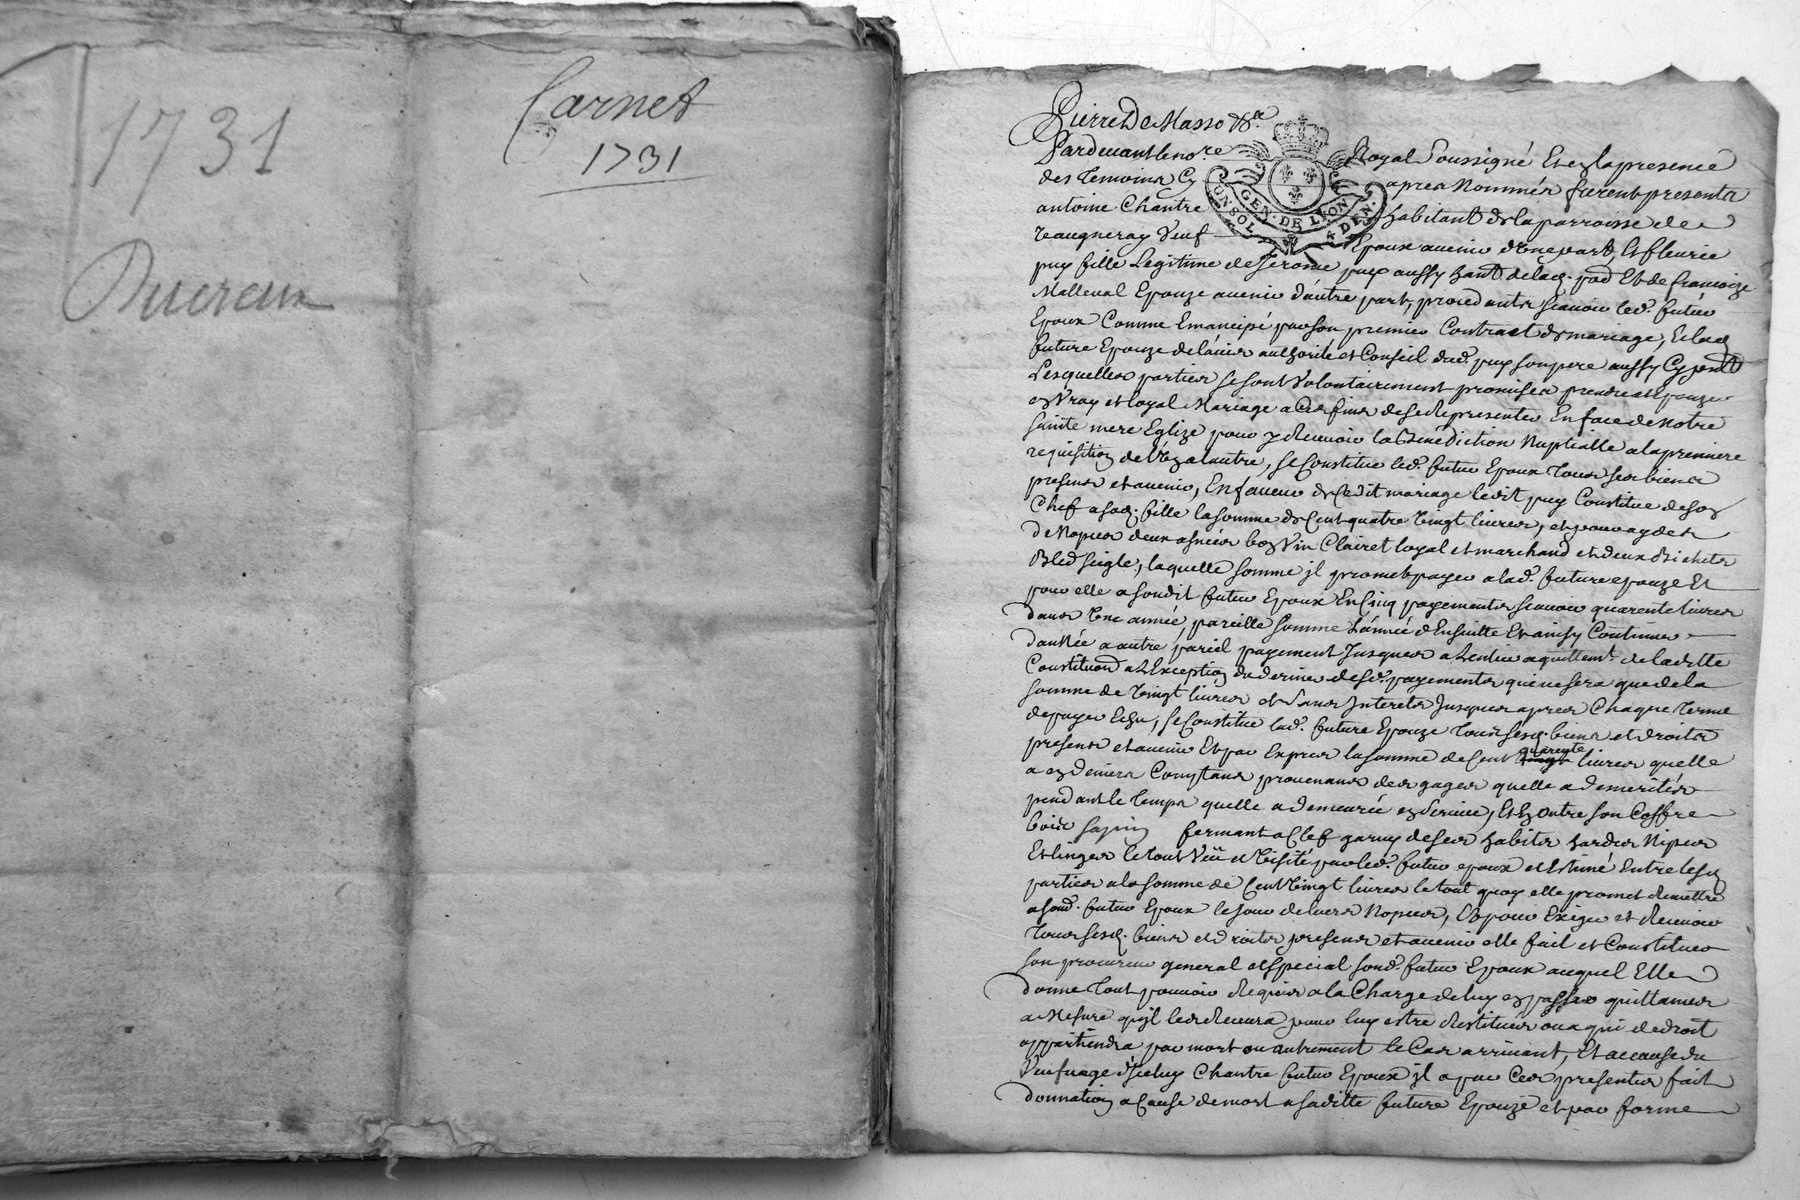 1731
Carnet
1731
Pierre De Masso
Pardevant le no.re Royal Soussigné Et en la presence
des Temoins Cy apres Nommés furent presents
antoine Chantre habitant de la parroisse de
Veaugneray Veuf Epoux avenir d'Une part, Et fleurie
GEN · DE LYON
4 DEN ·
puy fille Legitime de Jerome puy aussy hant de lad. par Et de francoise
Malleval Epouze avenir d'autre part, procedants scavoir led. futur
Epoux Comme Emancipé par son premier Contract de mariage, Et lad.
future Epouze de l'avis authorité et Conseil dud. puy son pere aussy Cy pnt
Lesquelles parties se sont Volontairement promises prendre et Epouzer
en Vray et loyal Mariage a Ces fins de se Representer En face de Notre
sainte mere Eglize pour y Recevoir la Bénédiction Nuptialle a la premiere
requisition de l'Un a l'autre, se Constitue led. futur Epoux Tous ses biens
presens et avenir, En faveur de Cedit mariage ledit puy Constitue de son
Chef a sad. fille la somme de Cent quatre Vingt livres, et pour ayder
de Nopces deux asnées bon Vin Clairet loyal et marchand et deux Bichets
Bled seigle, laquelle somme jl promet payer a lad. future epouze Et
pour elle a sondit futur Epoux En Cinq payements scavoir quarente livres
dans Une année, pareille somme L'année d'Ensuitte Et ainsy Continuer
d'année a autre pareil payement Jusques a L'entier aquittemt. de laditte
Constitution a L'Exception du dernier desd. payements qui ne sera que de la
somme de Vingt livres et sans Interets Jusques apres Chaque terme
de payer Echu, se Constitue lad. future Epouze Tous sesd. biens et droits
presens et avenir Et par Expres la somme de Cent quarente livres quelle
a en deniers Comptans provenans des gages quelle a demerités
pendant le Temps quelle a demeurée en service, Et En outre son Coffre
bois sapin fermant a Clef garny de ses habits hardes Nipes
Et linges le tout Veu et Visité par led. futur epoux et Estimé Entre lesd.
parties a la somme de Cent Vingt livres le tout quoy elle promet Remettre
a sond. futur Epoux le jour de leurs Nopces, Et pour Exiger et Recevoir
Tous sesd. biens et droits presens et avenir elle fait et Constitue
son procureur general et special sond. futur Epoux auquel Elle
donne Tout pouvoir Requis a la Charge de luy en passer quittances
a Mesure qu'jl les Recevra pour luy estre Restitués ou a qui de droit
appartiendra par mort ou autrement le Cas arrivant, Et a cause du
Veufvage d'jceluy Chantre futur Epoux jl a par Ces presentes fait
donnation a Cause de mort a saditte future Epouze et par forme